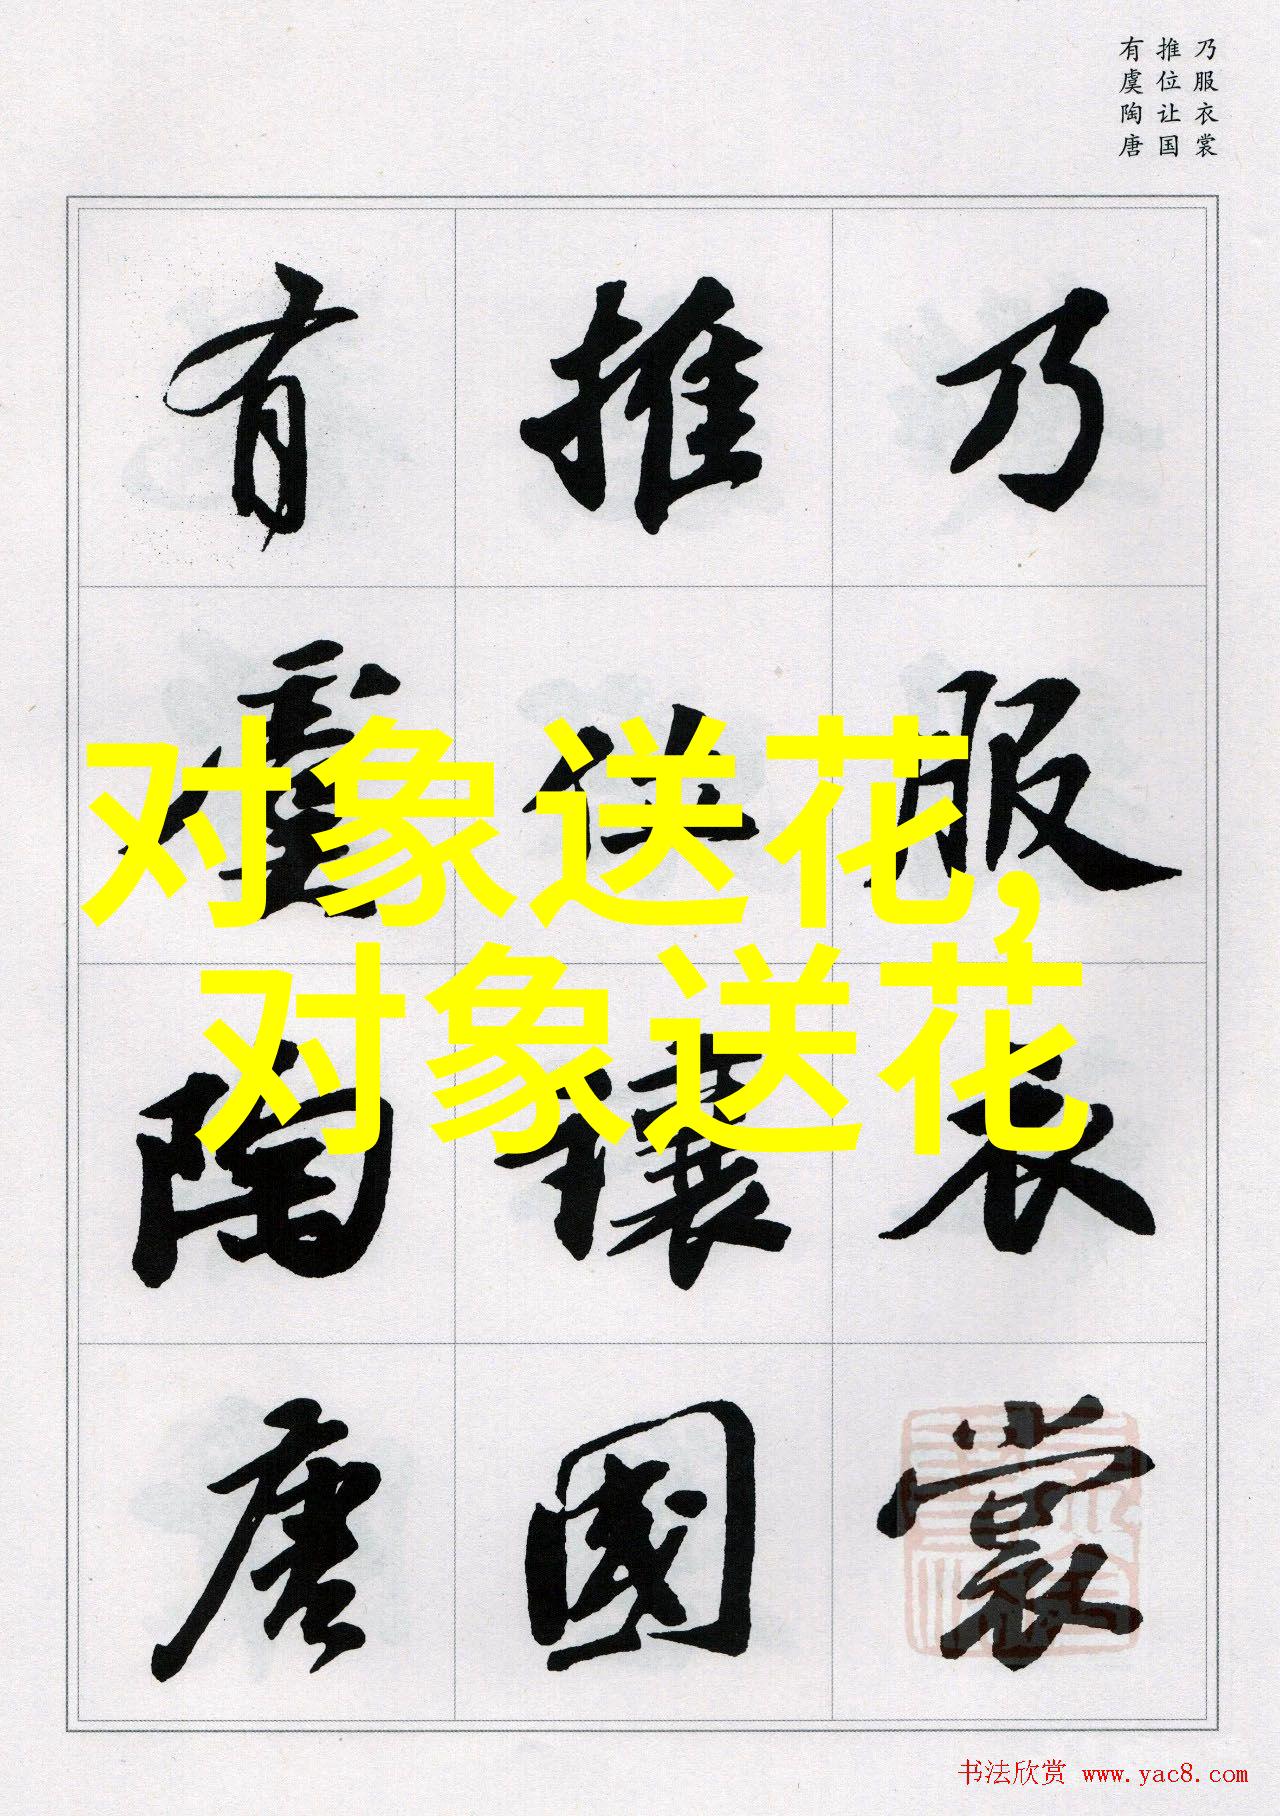 乃服衣裳
推位让国
有虞陶唐
乃服衣裳
推位讓國
有虞陶唐
对象送花,
对象送花
书法欣赏 www.yac8.com